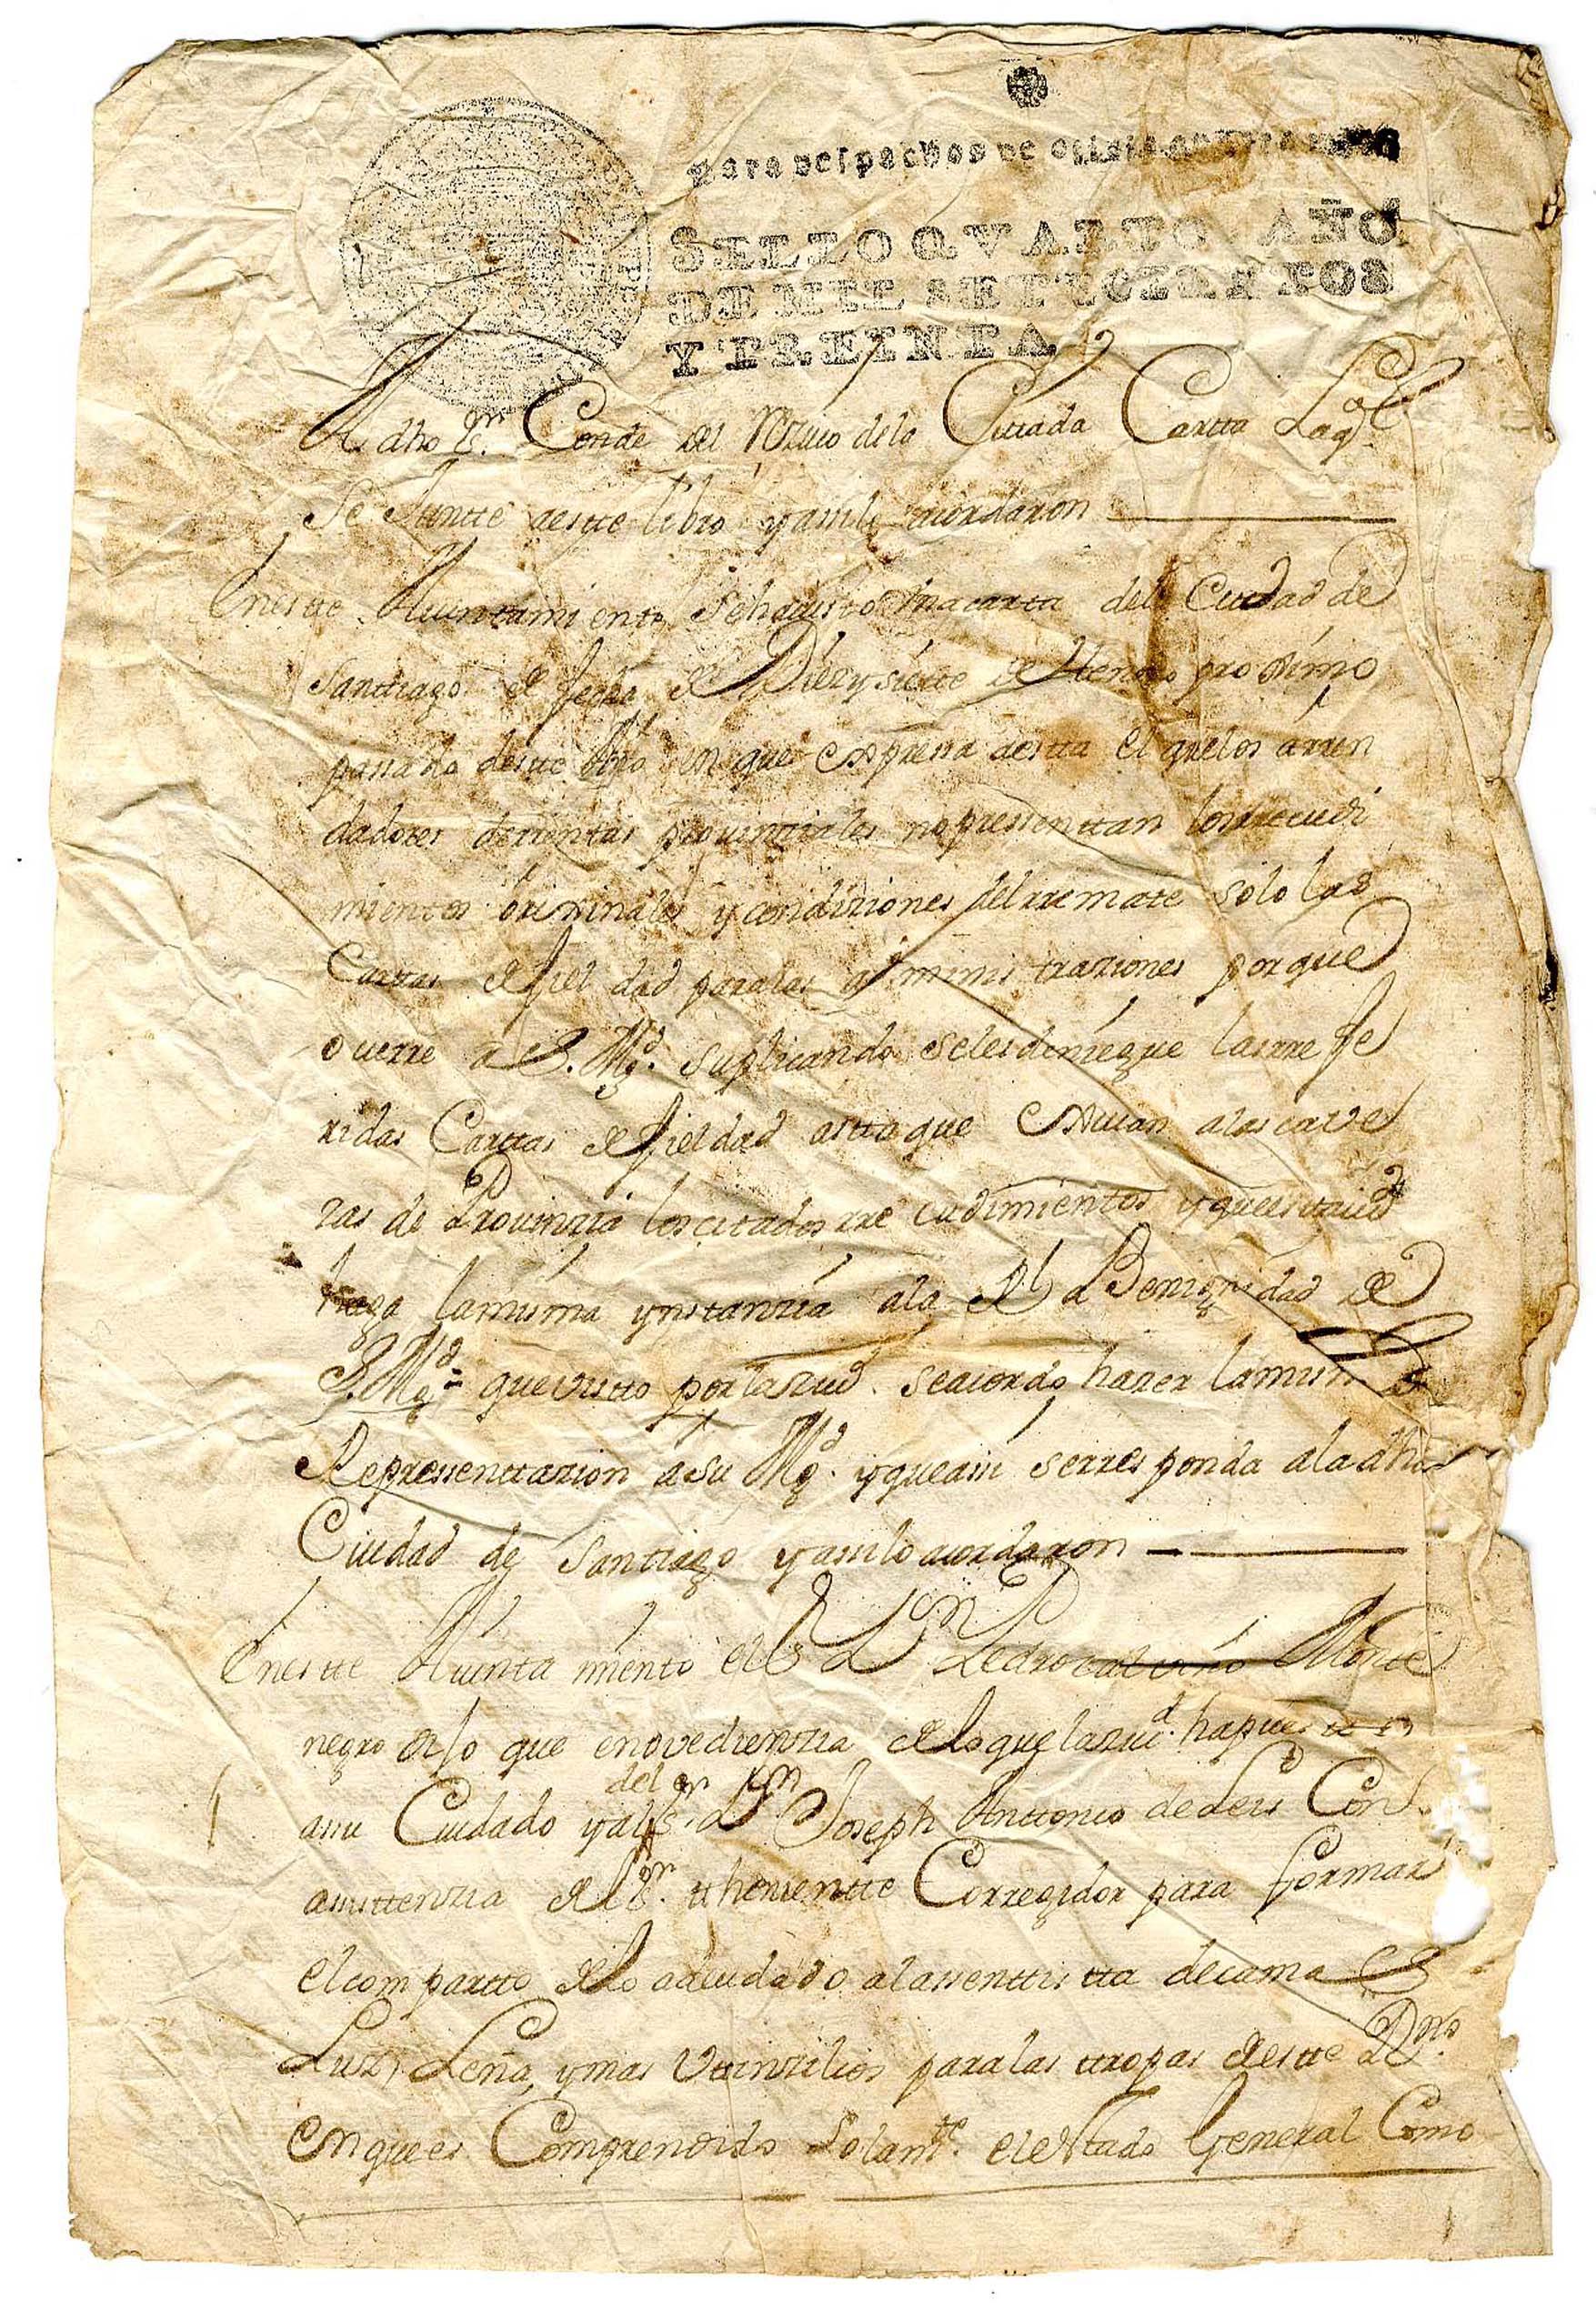 Para despachos de oficio
SELLO QVARTO, AÑO
DE MIL SETECIENTOS
Y TREINTA
A dho Sr. Conde del la Cittada Cartta Laql
Se Juntte aestte libro y assi lo acordaron
Enestte Aiuntamiento Sehavisto Una carta dela Ciudad de
Santtiago de fecha de Diezysiette de Henero proximo
passado destte Año en que expressa aestta el quelos arren
dadores derrentas provinziales nopressenttan losrrecudi
mientos originales y condiziones del rremate solo las
Carttas de fieldad paralas administraziones porque
ocurre a S. Mgd. suplicando selesdeniegue lasrrefe
ridas Carttas de fieldad asttaque exivan alas cave
zas de Provinzia loscitados rrecudimientos yqueesttaziud
haga lamisma ynstanzia ala Rl Benignidad de
S. Mgd = quevistto porlaziud. seacordo hazer lamisma
Representtazion asu Mgd. yqueassi serresponda aladha
Ciudad de Santiago yassilo acordaron
Enestte Aiuntamiento el Sr Dn Pedro valviño Monte
negro dijo que enovedienzia delo quelaziud. hapuestto
assu Cuidado yal del sr Dn Joseph Anttonio deLeis Con
assisttenzia del Sr. tthenientte Corregidor para formar
elcompartto delo adeudado alassenttistta decama
Luz, Leña, ymas Uttenzilios paralas ttropas destte Rno.
enquees Comprendido Solamte. elestado General Como